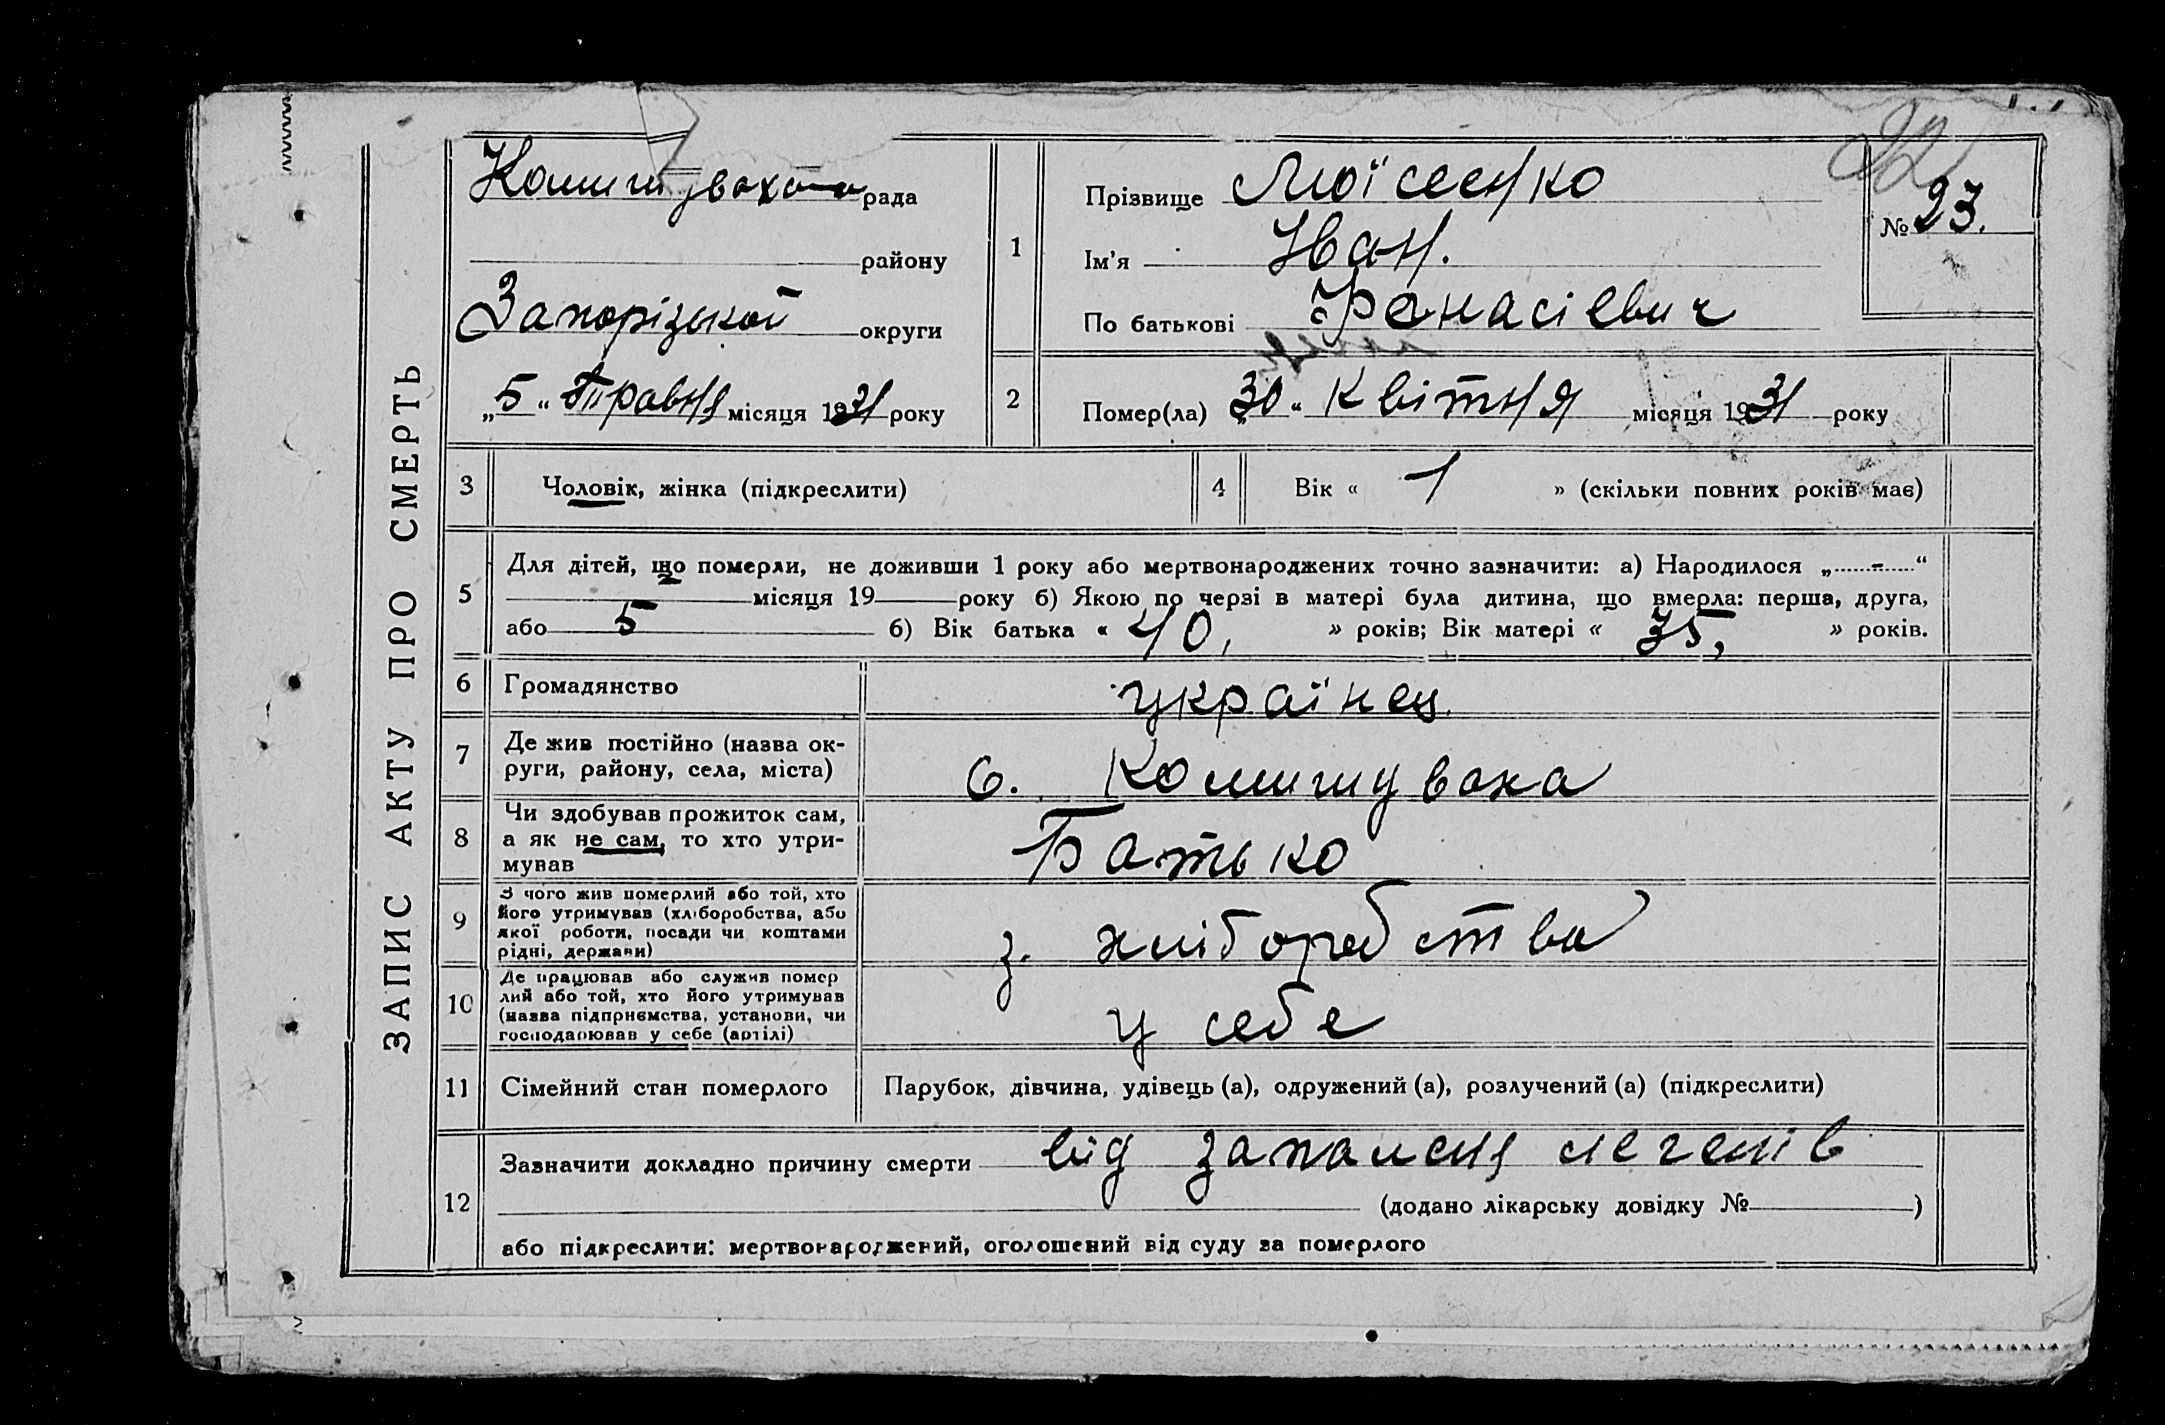 ЗАПИС АКТУ ПРО СМЕРТЬ
22
рада
району
Запорізької округи
„5“ Травня місяця 1931 року
№ 23.
1
Прізвище Моїсеенко
Ім'я Іван.
По батькові Фанасіевич
2
Помер(ла) „30“ Квітня місяця 1931 року
3 Чоловік, жінка (підкреслити)
4 Вік « 1 » (скільки повних років має)
5 Для дітей, що померли, не доживши 1 року або мертвонароджених точно зазначити: а) Народилося „......-......“
місяця 19 року б) Якою по черзі в матері була дитина, що вмерла: перша, друга,
або 5 б) Вік батька « 40, » років; Вік матері « 35, » років.
6 Громадянство українец
7 Де жив постійно (назва ок-
руги, району, села, міста) с. Комишуваха
8 Чи здобував прожиток сам,
а як не сам, то хто утри-
мував Батько
9 З чого жив померлий або той, хто
його утримував (хліборобства, або
якої роботи, посади чи коштами
рідні, держави) з. хліборобства
10 Де працював або служив помер
лий або той, хто його утримував
(назва підприємства, установи, чи
господарював у себе (артілі) у себе
11 Сімейний стан померлого Парубок, дівчина, удівець (а), одружений (а), розлучений (а) (підкреслити)
12 Зазначити докладно причину смерти від запаленя легенів
(додано лікарську довідку № )
або підкреслити: мертвонароджений, оголошений від суду за померлого